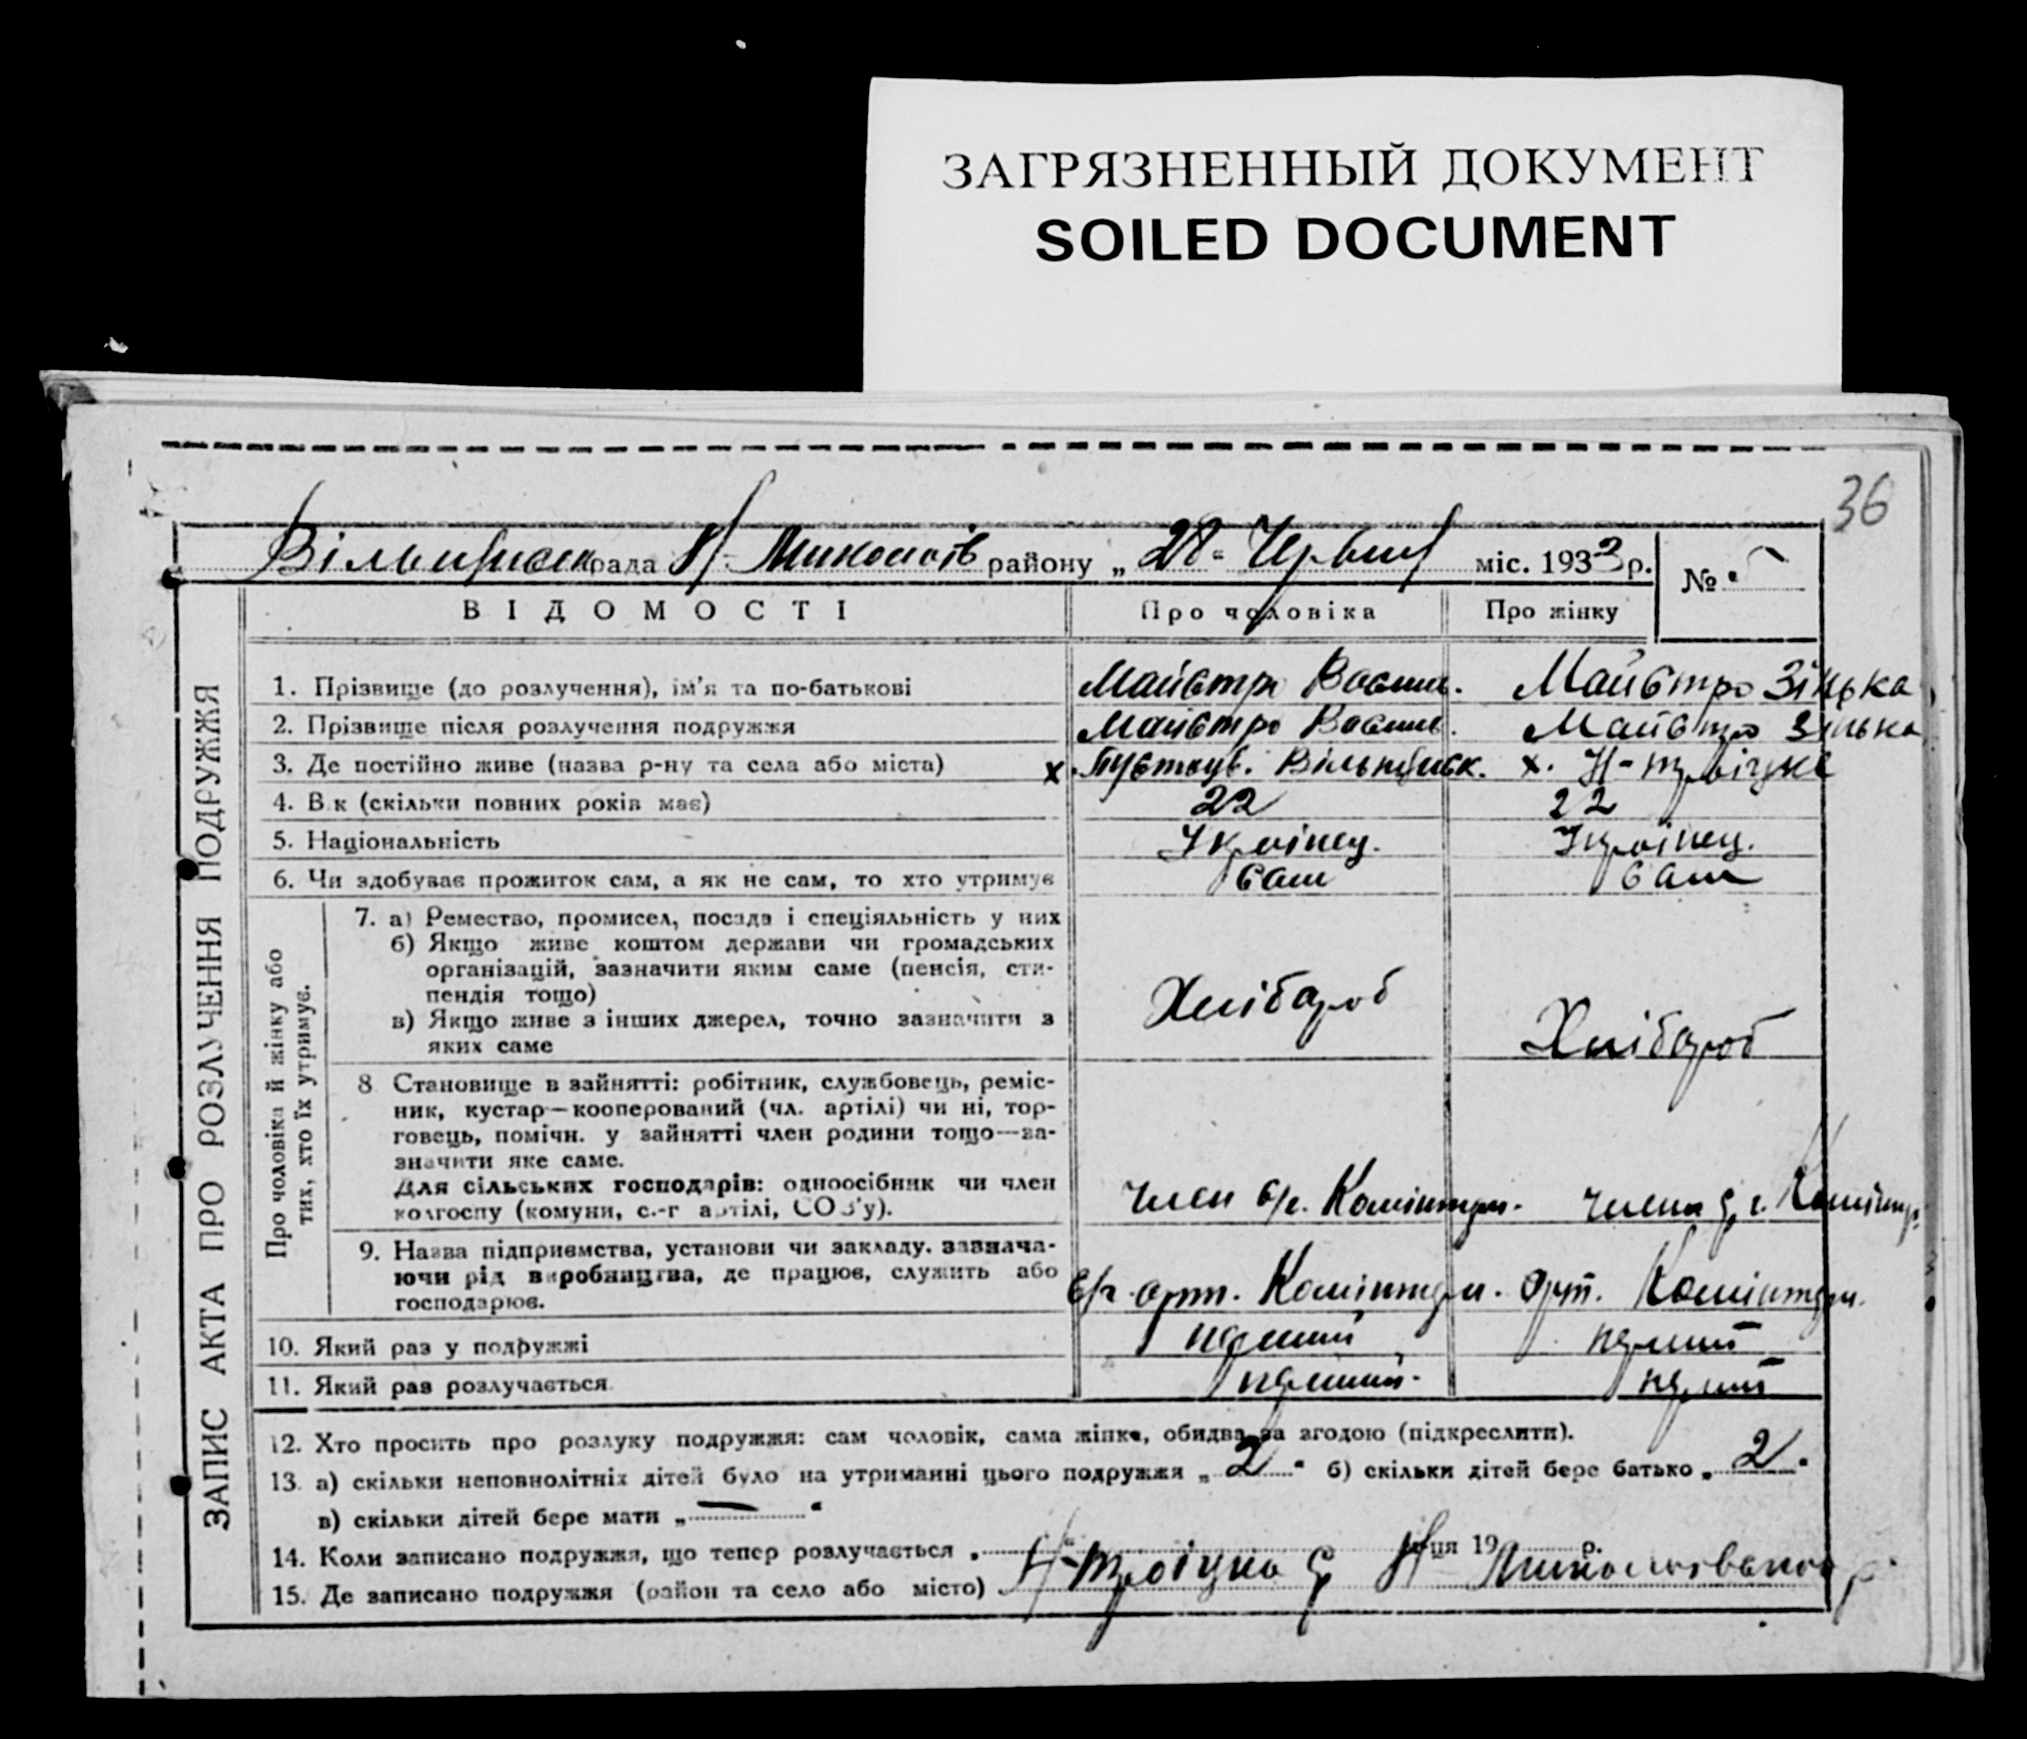 ЗАГРЯЗНЕННЫЙ ДОКУМЕНТ
SOILED DOCUMENT
36
рада Н-Миколаїв району „28" Червня міс. 1933 р.
№
ВІДОМОСТІ Про чоловіка Про жінку
ЗАПИС АКТА ПРО РОЗЛУЧЕННЯ ПОДРУЖЖЯ
1. Прізвище (до розлучення), ім'я та по-батькові Майстро Васил. Майстро Зінька
2. Прізвище після розлучення подружжя Майстро Васил. Майстро Зінька
3. Де постійно живе (назва р-ну та села або міста) х. х. Н-Троіцке
4. Вік (скільки повних років має) 22 22
5. Національність Украінец. Украінец.
6. Чи здобуває прожиток сам, а як не сам, то хто утримує сам сам
Про чоловіка й жінку або
тих, хто їх утримує.
7. а) Ремество, промисел, посада і спеціяльність у них
б) Якщо живе коштом держави чи громадських
організацій, зазначити яким саме (пенсія, сти-
пендія тощо)
в) Якщо живе з інших джерел, точно зазначити з
яких саме
Хлібороб Хлібороб
8 Становище в зайнятті: робітник, службовець, реміс-
ник, кустар—кооперований (чл. артілі) чи ні, тор-
говець, помічн. у зайнятті член родини тощо—за-
значити яке саме.
Для сільських господарів: одноосібник чи член
колгоспу (комуни, с.-г артілі, СОЗ'у).
член с/г. Комінтерн. члена с. г. Комінтер.
9. Назва підприємства, установи чи закладу. зазнача-
ючи рід виробництва, де працює, служить або
господарює.
с/г арт. Комінтерн. арт. Комінтерн.
10. Який раз у подружжі перший перший
11. Який раз розлучається перший. перший
12. Хто просить про розлуку подружжя: сам чоловік, сама жінка, обидва за згодою (підкреслити).
13. а) скільки неповнолітніх дітей було на утриманні цього подружжя „2" б) скільки дітей бере батько „2"
в) скільки дітей бере мати „—"
14. Коли записано подружжя, що тепер розлучається „ ця 19 р.
15. Де записано подружжя (район та село або місто) Н-Троіцка С Н